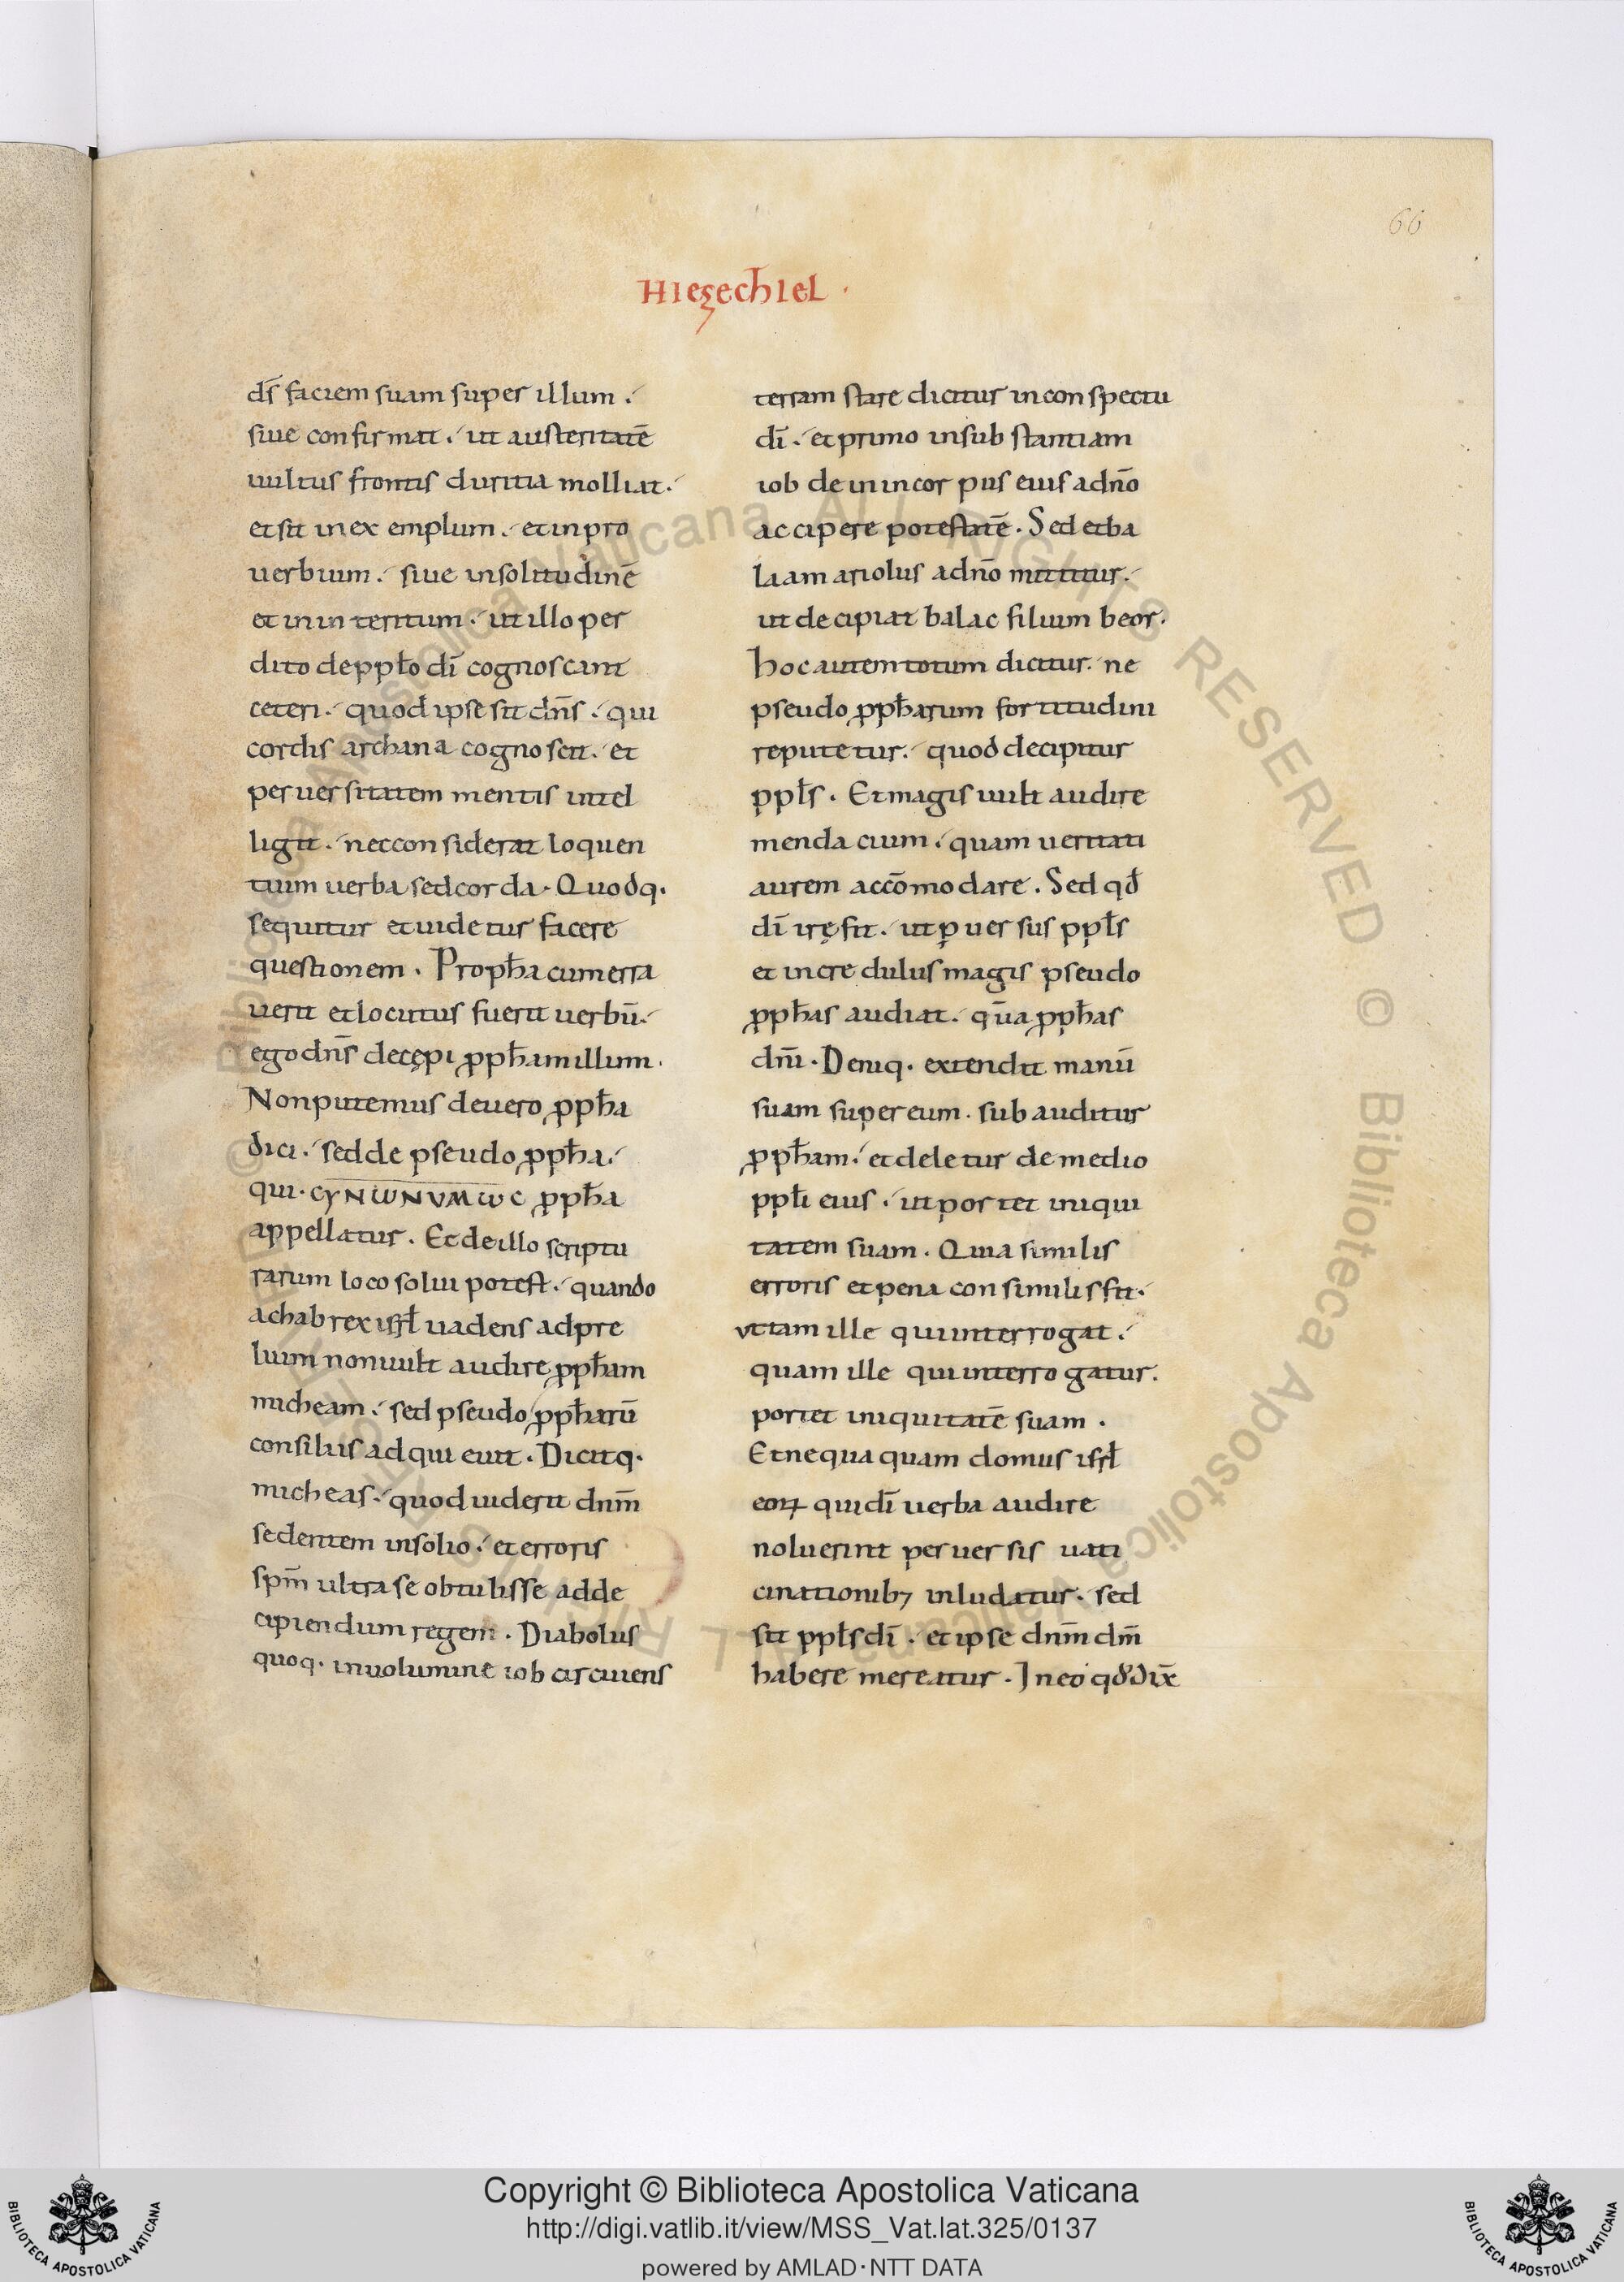 66
HIEZECHIEL ·
dṡ faciem suam super illum ·
siue confirmat · ut austeritatē
uultus frontis duritia molliat ·
et sit in ex emplum · et in pro
uerbium · siue in solitudinē
et in in teritum · ut illo per
dito de ppło dī cognoscant
ceteri · quod ipse sit dn̄s · qui
cordis archana cognoscit · et
peruersitatem mentis intel
ligit · nec considerat loquen
tium uerba sed corda · Quodq·
sequitur et uidetur facere
questionem · Propħa cum erra
uerit et locutus fuerit uerbū ·
ego dn̄s decępi ꝓpħam illum ·
Non putemus de uero ꝓpħa
dici · sed de pseudo ꝓpħa ·
qui · CYNωNVMωC ꝓpħa
appellatur · Et de illo scriptu
rarum loco solui potest · quando
achab rex isrł uadens ad pre
lium non uult audire ꝓpħam
micheam · sed pseudo ꝓpħarū
consiliis adquieuit · Dicitq·
micheas · quod uiderit dnm̄
sedentem in solio · et erroris
spm̄ ultra se obtulisse ad de
cipiendum regem · Diabolus
quoq· in uolumine iob circuiens
terram stare dicitur in conspectu
dī · et primo in substantiam
iob dein in corpus eius a dn̄o
accipere potestatē · Sed et ba
laam ariolus a dn̄o mittitur ·
ut decipiat balac filium beor ·
hoc autem totum dicitur · ne
pseudo ꝓpħarum fortitudini
reputetur · quod decipitur
ppłs · Et magis uult audire
mendacium · quam ueritati
aurem accōmodare · Sed qđ
dī irę fit · ut ꝑuersus ppłs
et incredulus magis pseudo
ꝓpħas audiat · qūa ꝓpħas
dnī · Deniq· extendit manū
suam super eum · subauditur
ꝓpħam · et deletur de medio
ppłi eius · ut portet iniqui
tatem suam · Quia similis
erroris et pena consimilis fit ·
vt tam ille qui interrogat ·
quam ille qui interrogatur ·
portet iniquitatē suam ·
Et nequaquam domus isrł
eoꝝ qui dī uerba audire
noluerint peruersis uati
cinationibꝫ inludatur · sed
sit ppłs dī · et ipse dnm̄ dm̄
habere mereatur · In eo qđ dix̄
© Biblioteca Apostolica Vaticana ALL RIGHTS RESERVED
Copyright © Biblioteca Apostolica Vaticana
http://digi.vatlib.it/view/MSS_Vat.lat.325/0137
powered by AMLAD·NTT DATA
BIBLIOTECA APOSTOLICA VATICANA
BIBLIOTECA APOSTOLICA VATICANA